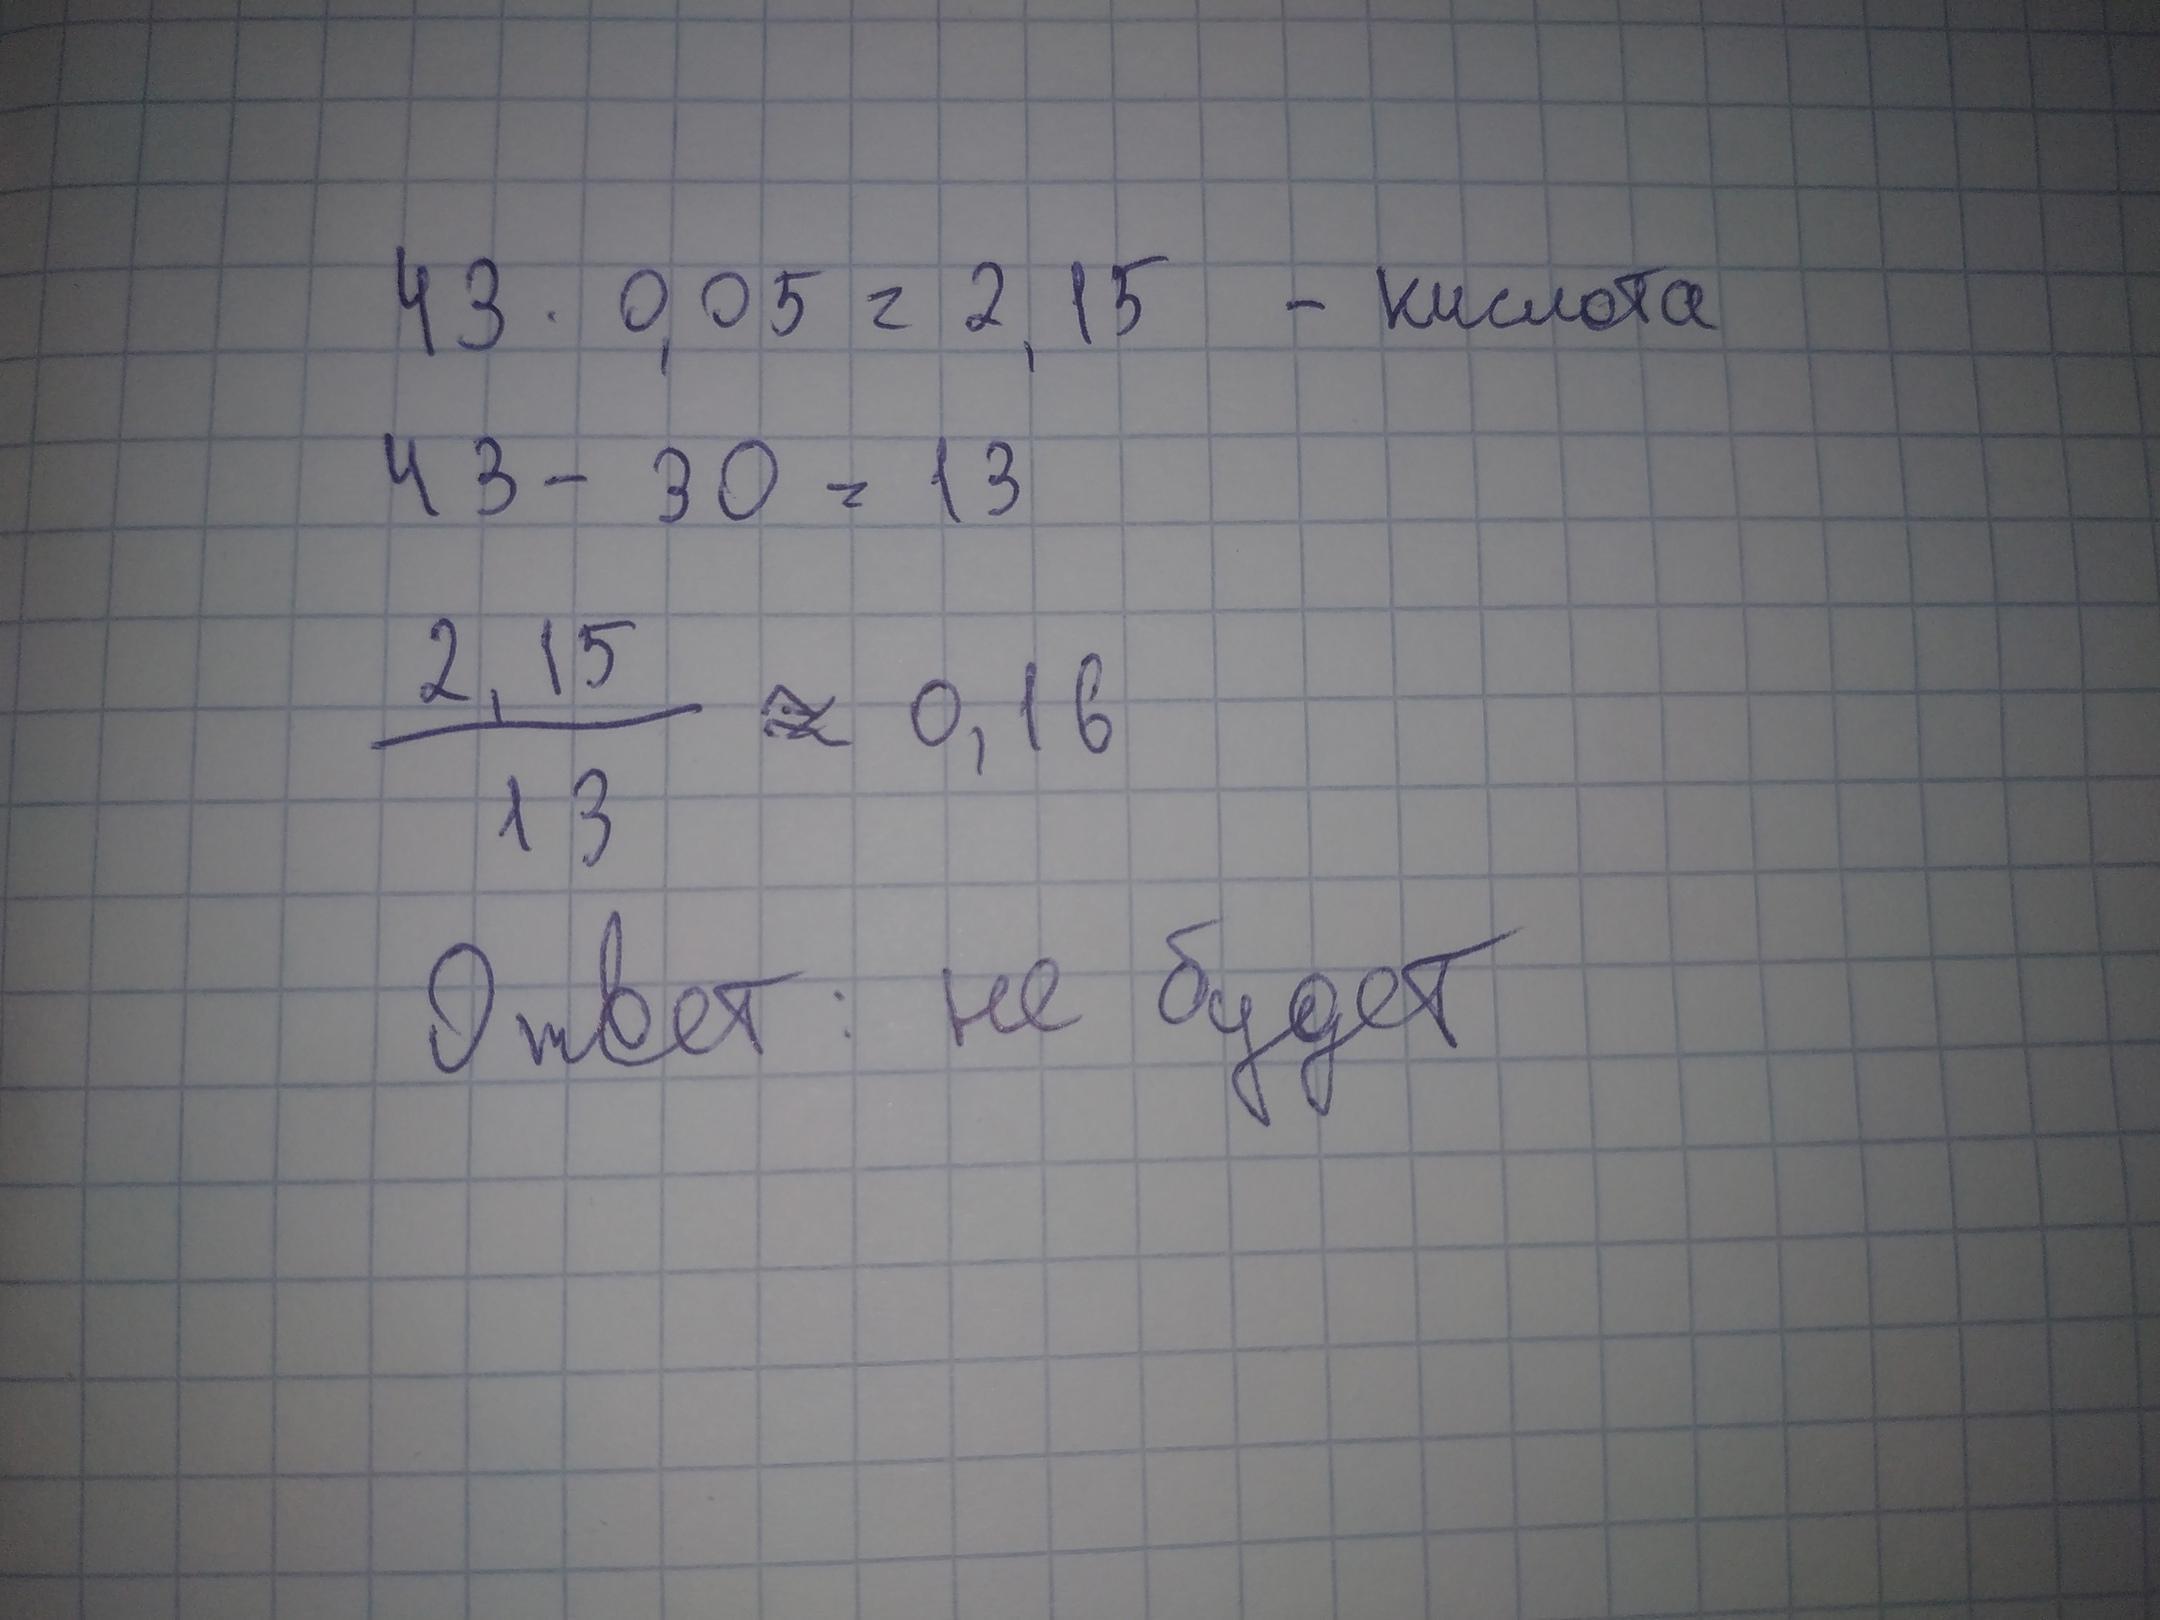 43 · 0,05 = 2,15 - кислота
43 - 30 = 13
2,15
13
≈ 0,16
Ответ: не будет